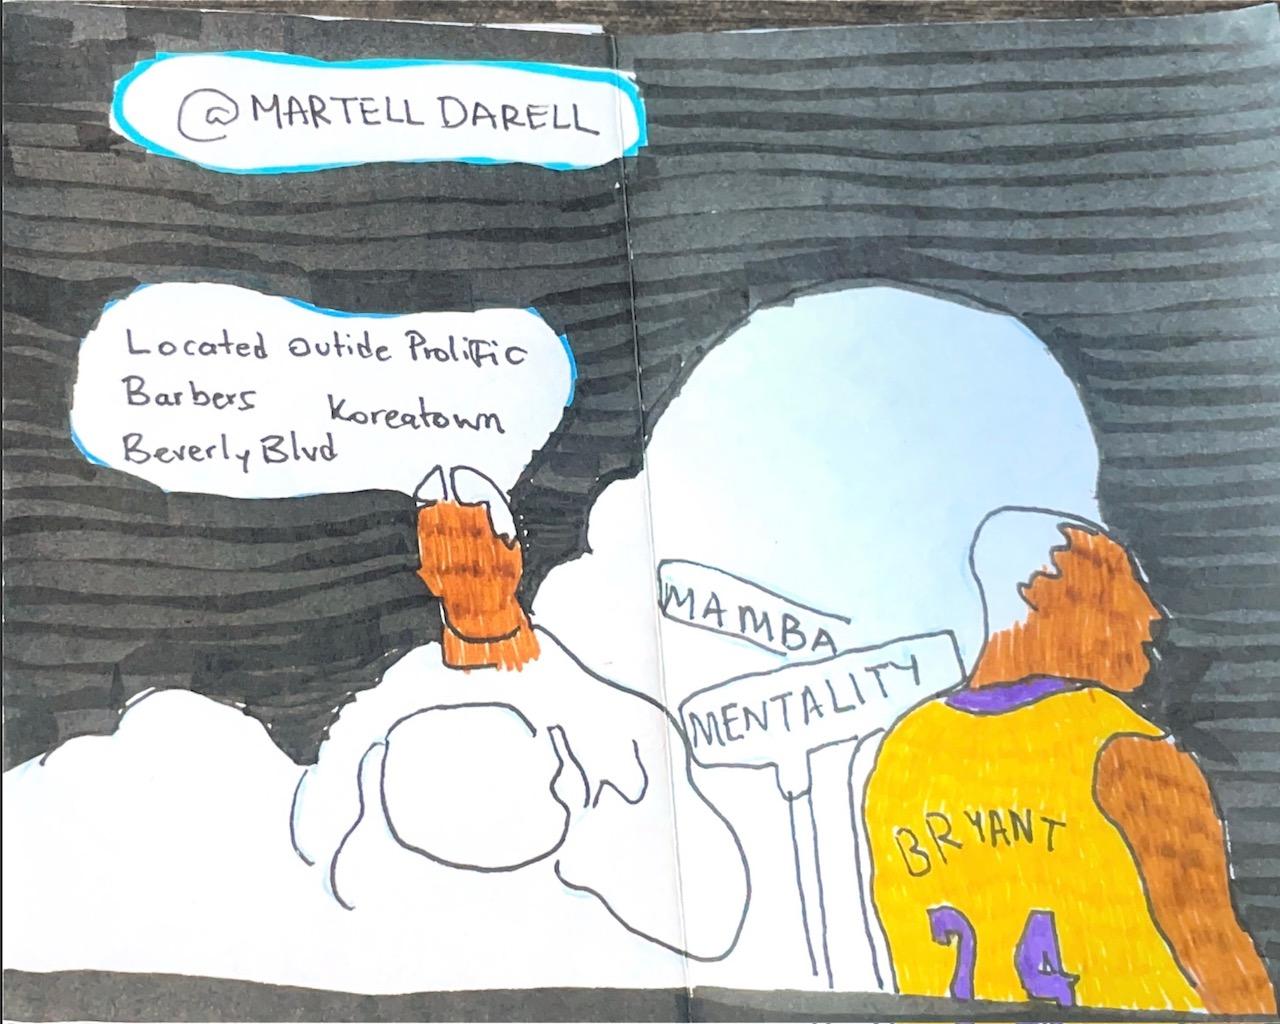 @MARTELL DARELL
Located outide Prolific
Barbers Koreatown
Beverly Blvd
MAMBA
MENTALITY
BRYANT
24